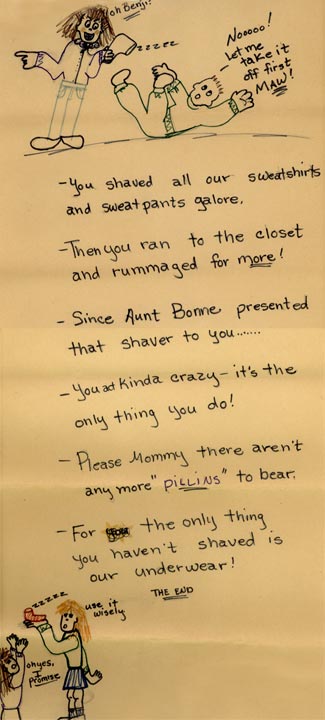 oh Benji!
zzzzz
Nooooo!
let me
take it
off first
MAW!
- You shaved all our sweatshirts
and sweatpants galore.
- Then you ran to the closet
and rummaged for more!
- Since Aunt Bonne presented
that shaver to you.......
- You act kinda crazy - it's the
only thing you do!
- Please Mommy there aren't
any more "PILLINS" to bear.
- For the only thing
you haven't shaved is
our underwear!
THE END
zzzzz
use it
wisely
oh yes,
I
promise